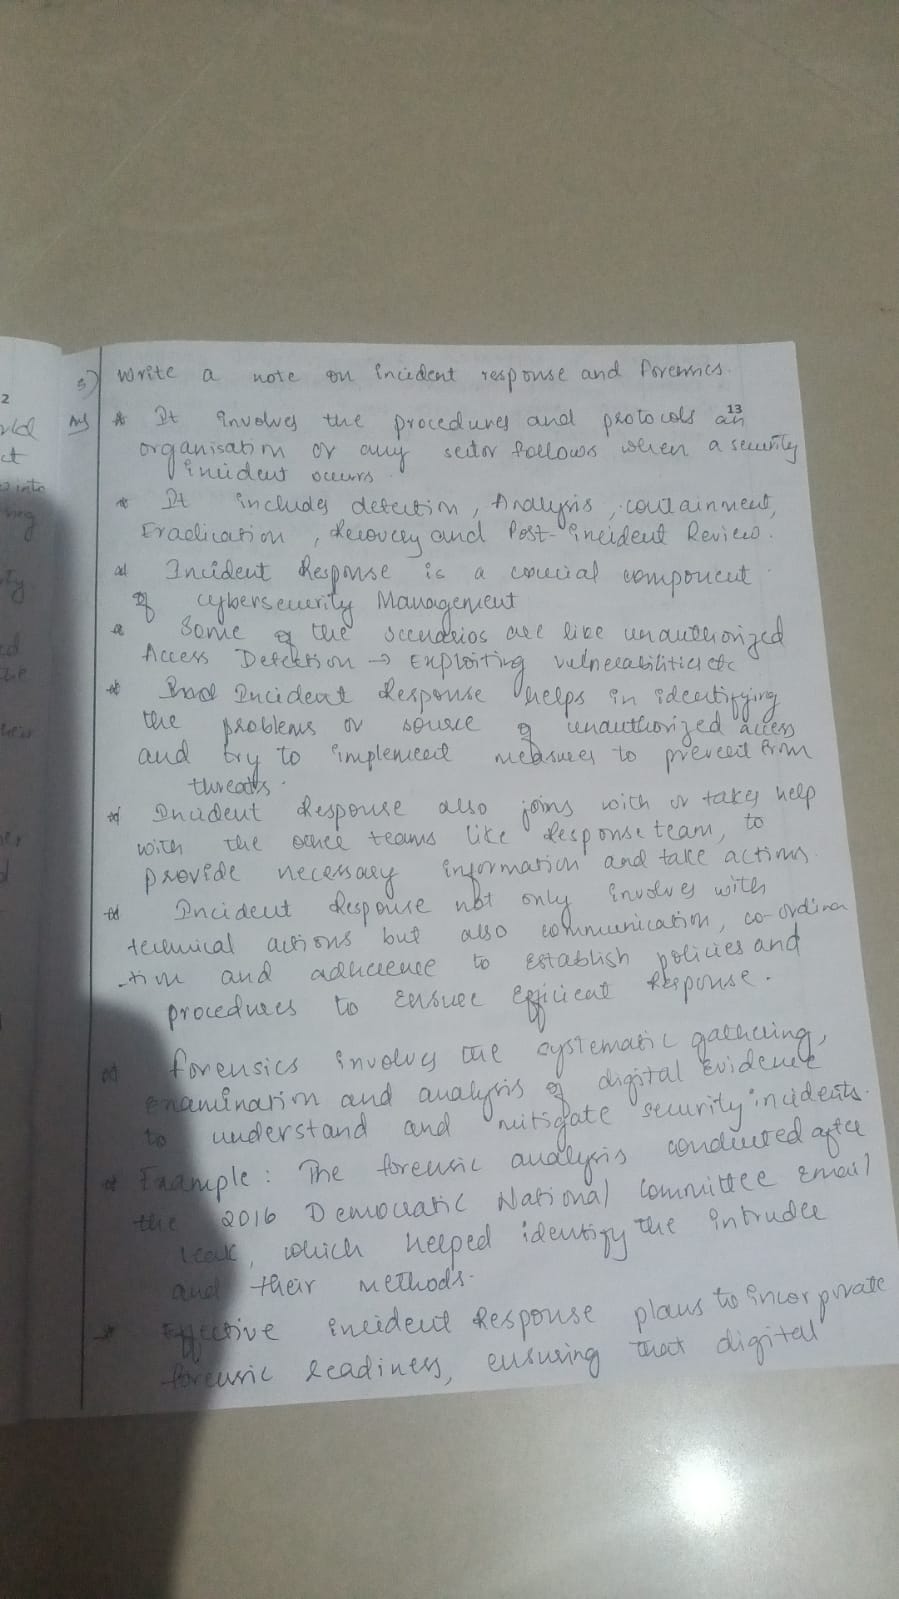 2
rld
ct
5) Write a note on incident response and forensics.
13
Ans * It involves the procedures and protocols an
organisation or any sector follows when a security
incident occurs.
* It includes detection, Analysis, containment,
Eradication, Recovery and Post-incident Review.
* Incident Response is a crucial component
of cybersecurity Management
* Some of the scenarios are like unauthorized
Access Detection → Exploiting vulnerabilities etc
* Incident Response helps in identifying
the problems or source of unauthorized access
and try to implement measures to prevent from
threats.
* Incident Response also joins with or takes help
with the other teams like Response team, to
provide necessary information and take actions.
* Incident Response not only involves with
technical actions but also communication, co-ordina
-tion and adherence to establish policies and
procedures to ensure efficient Response.
* forensics involves the systematic gathering,
examination and analysis of digital evidence
to understand and mitigate security incidents.
* Example: The forensic analysis conducted after
the 2016 Democratic National Committee Email
leak, which helped identify the intruder
and their methods.
* Effective incident Response plans to incorporate
forensic readiness, ensuring that digital